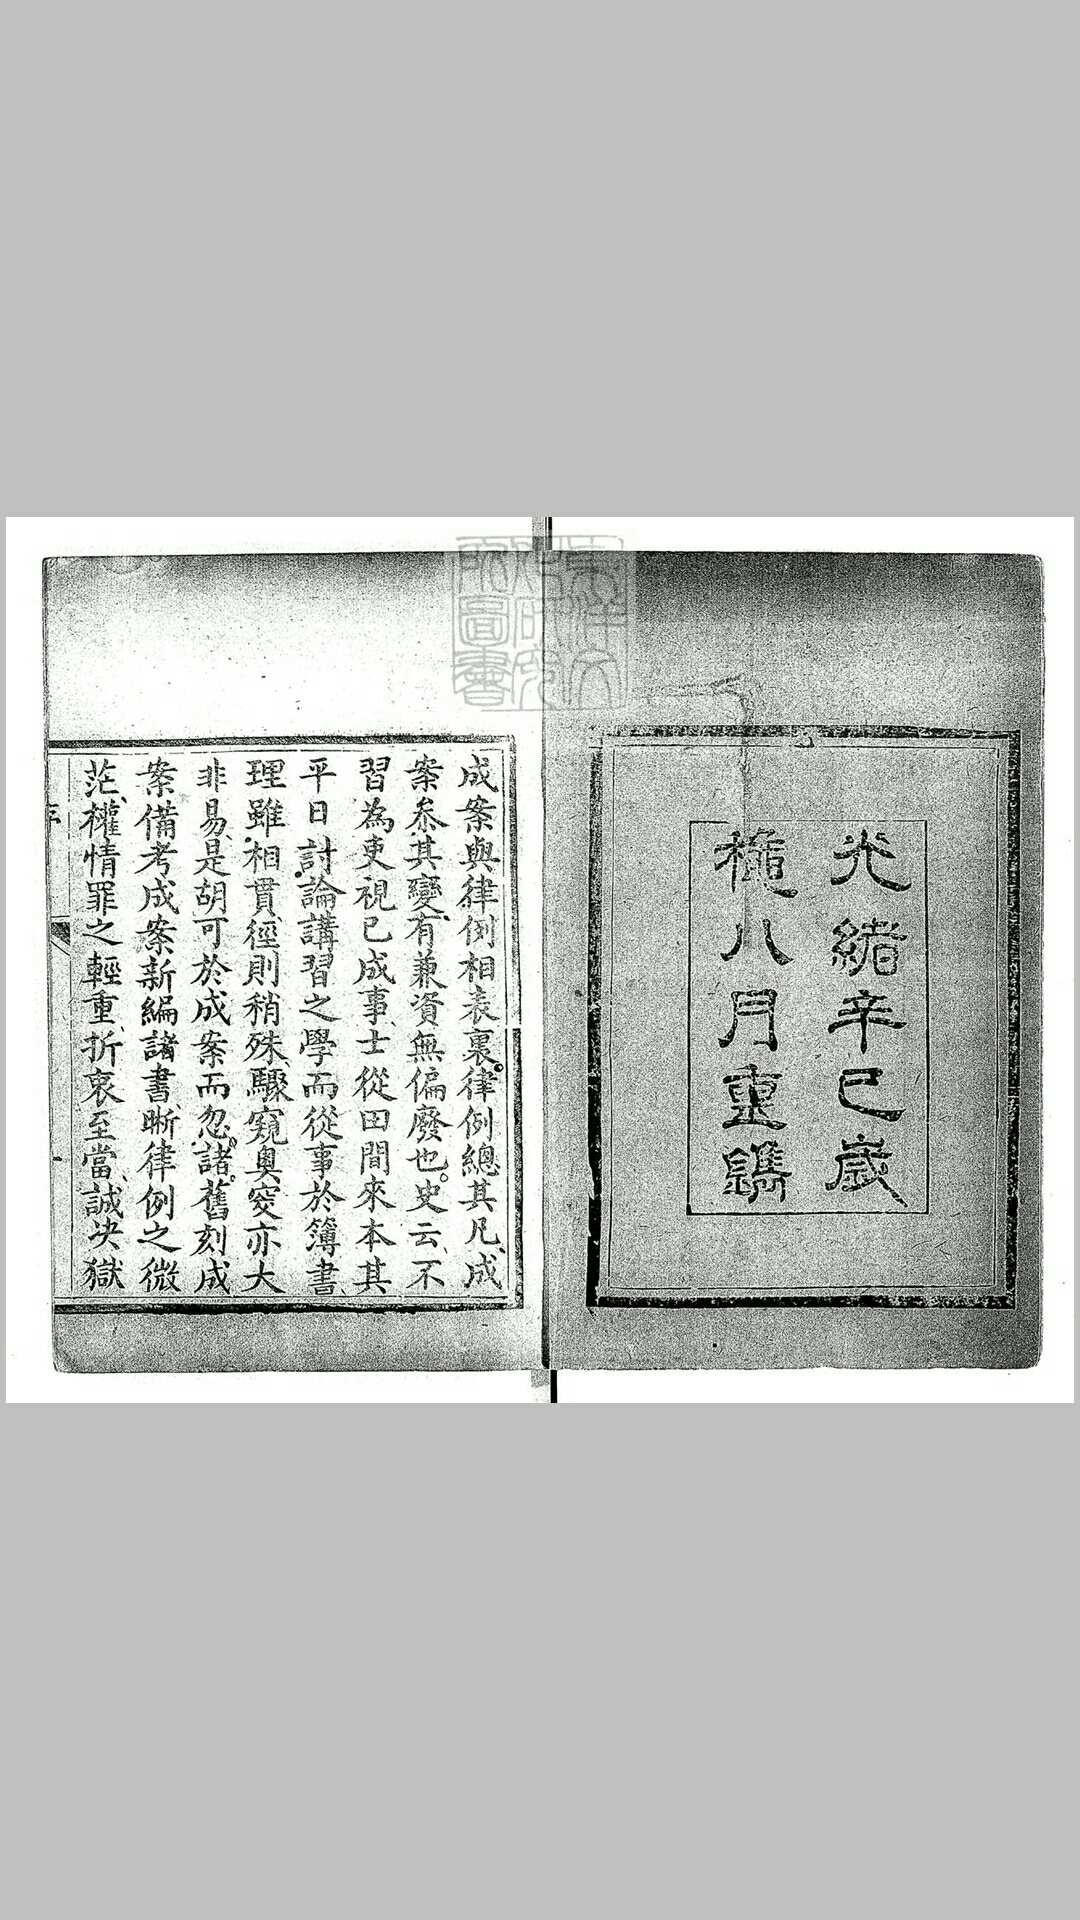 光緒辛巳歲
穐八月重鐫
成案與律例相表裏。律例總其凡、成
案叅其變、有兼資無偏廢也。史云、不
習為吏視已成事、士從田間來本其
平日討論講習之學而從事於簿書、
理雖相貫、徑則稍殊、驟窺奧窔亦大
非易、是胡可於成案而忽諸。舊刻成
案備考成案新編諸書晰律例之微
茫、權情罪之輕重、折衷至當、誠决獄